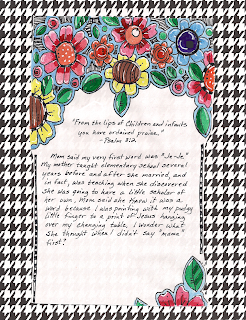 "From the lips of children and infants
you have ordained praise."
~Psalm 8:2
Mom said my very first word was "Je-Je."
My mother taught elementary school several
years before and after she married, and
in fact, was teaching when she discovered
she was going to have a little scholar of
her own. Mom said she knew it was a
word because I was pointing with my pudgy
little finger to a print of Jesus hanging
over my changing table. I wonder what
she thought when I didn't say "mama"
first?